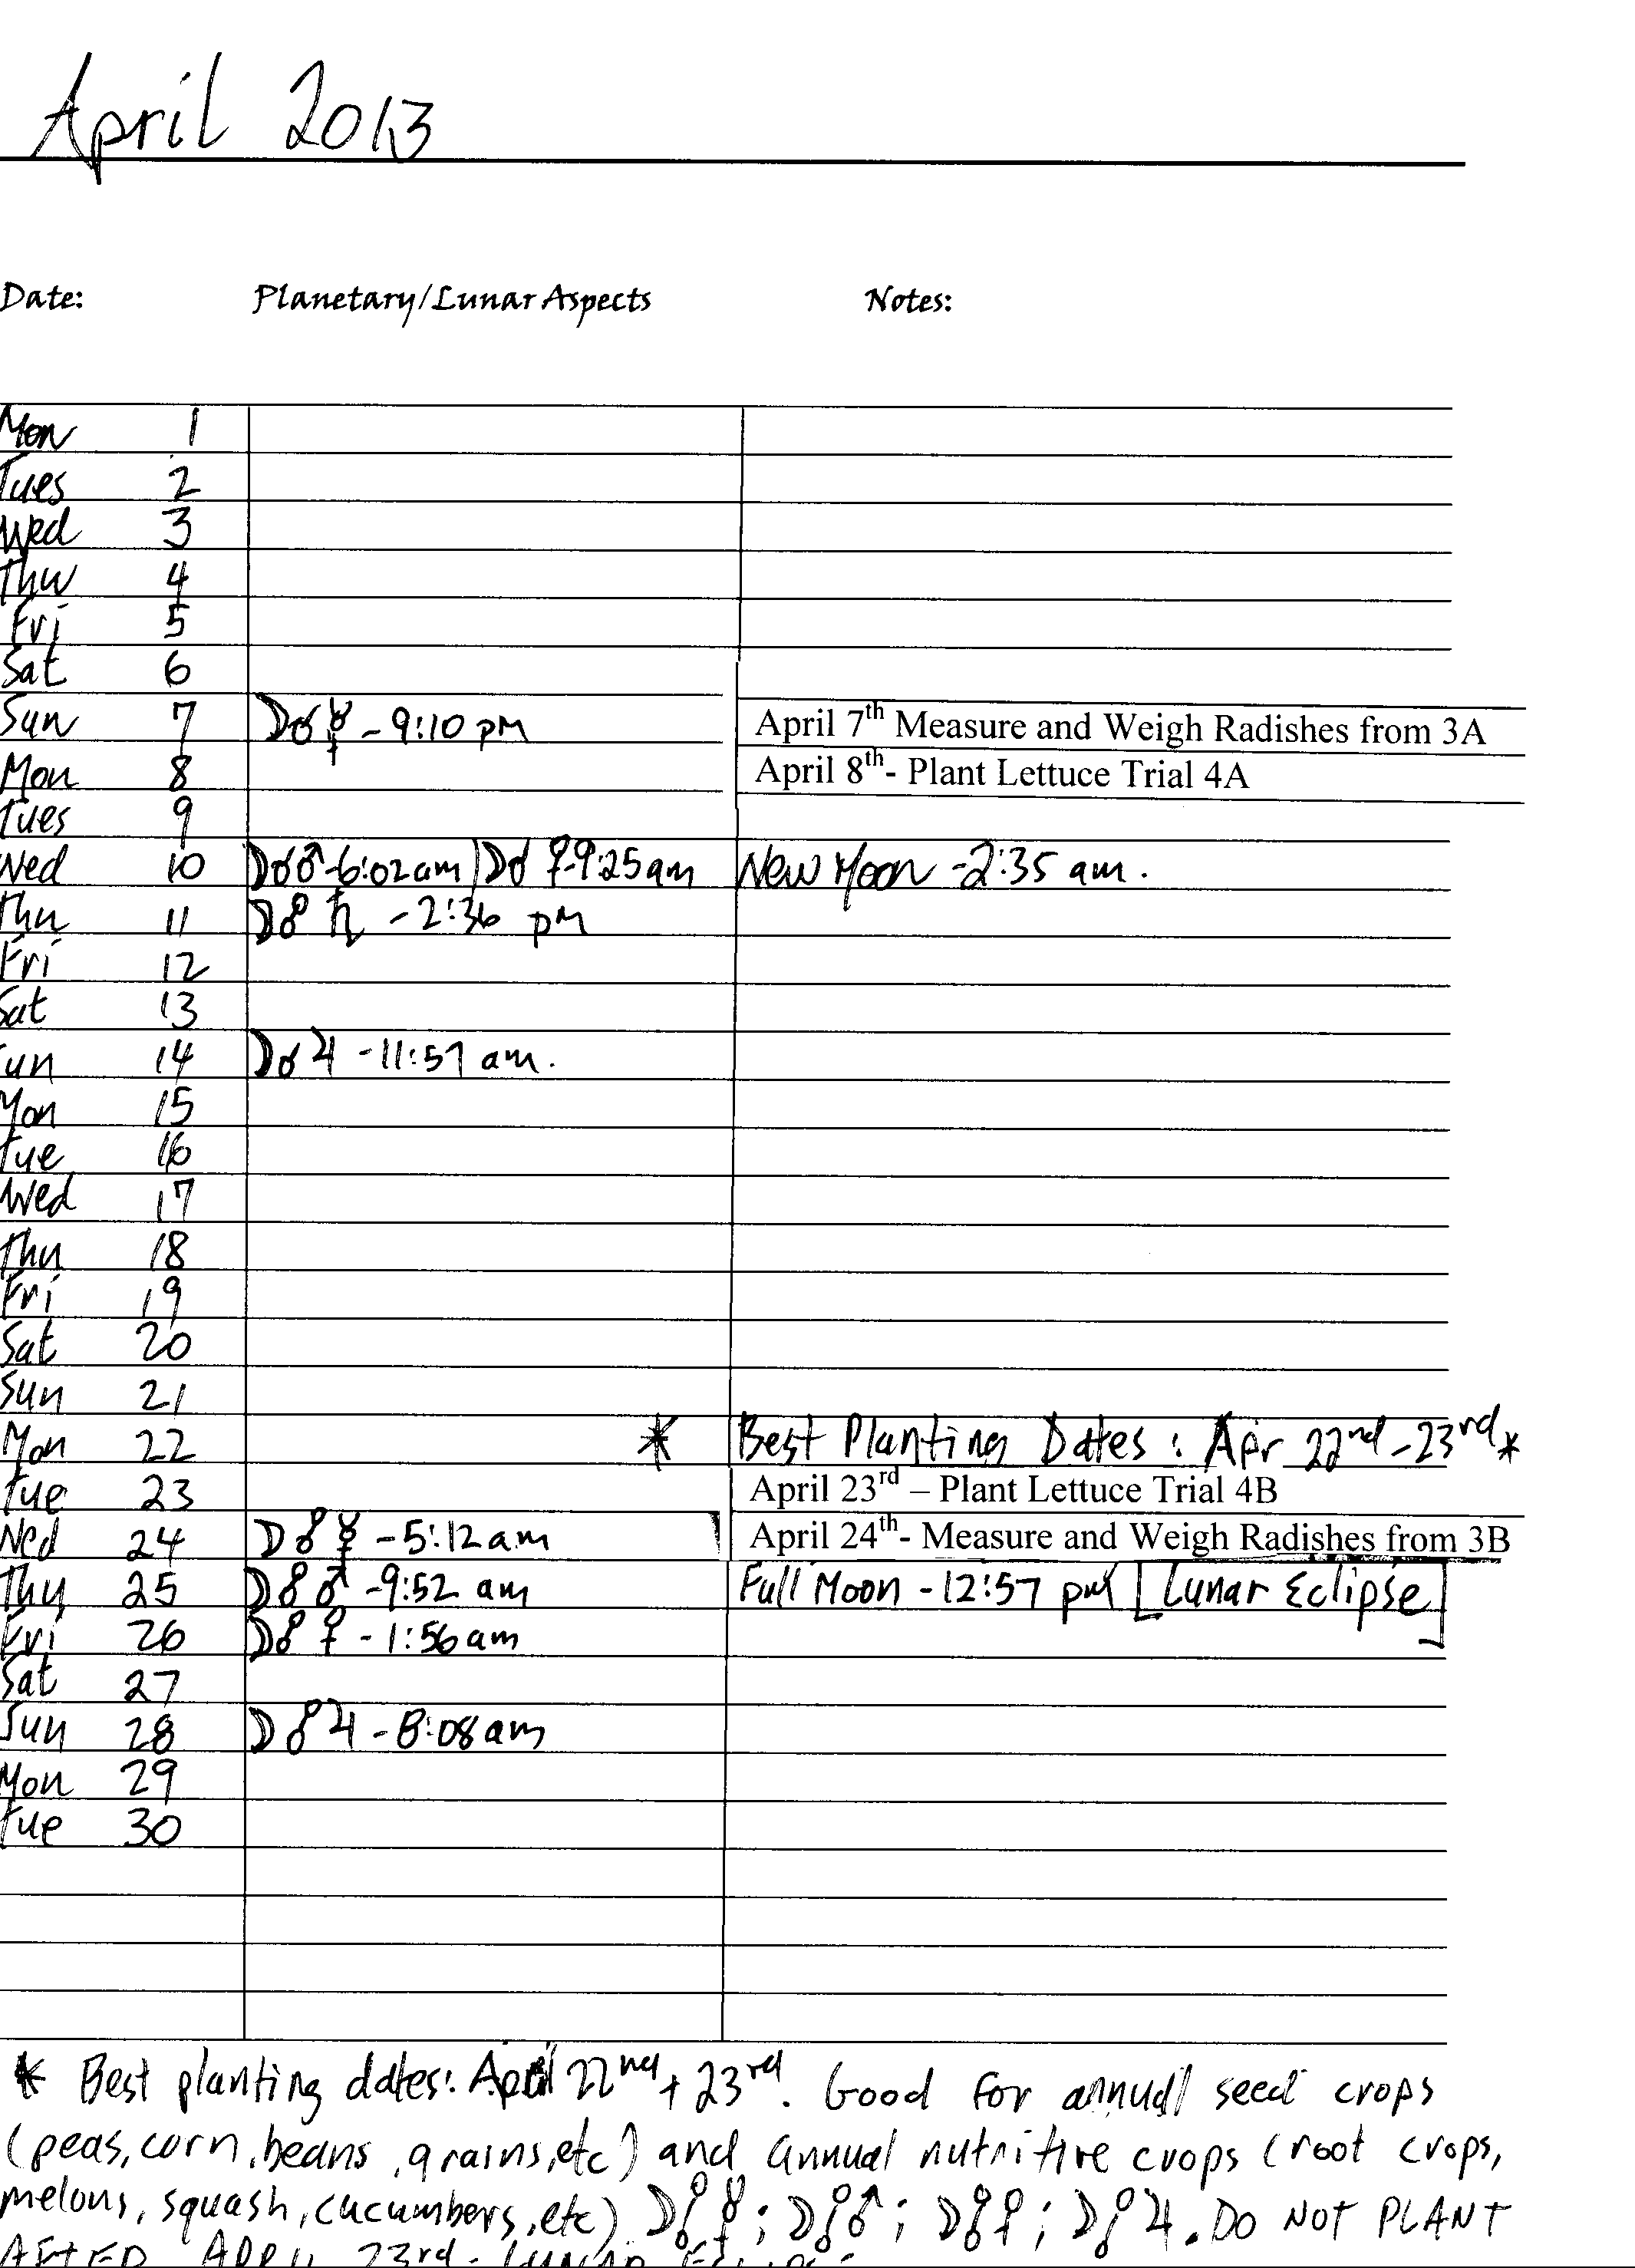 April 2013
Date: Planetary/Lunar Aspects Notes:
Mon 1
Tues 2
Wed 3
Thu 4
Fri 5
Sat 6
Sun 7 ☽☌☿ - 9:10 pm April 7th Measure and Weigh Radishes from 3A
Mon 8 April 8th- Plant Lettuce Trial 4A
Tues 9
Wed 10 ☽☌♂ - 6:02 am ☽☌♀ - 9:25 am New Moon - 2:35 am.
Thu 11 ☽☍♄ - 2:36 pm
Fri 12
Sat 13
un 14 ☽☌♃ - 11:57 am.
Mon 15
Tue 16
Wed 17
Thu 18
Fri 19
Sat 20
Sun 21
Mon 22 * Best Planting Dates: Apr 22nd-23rd *
Tue 23 April 23rd – Plant Lettuce Trial 4B
Wed 24 ☽☍☿ - 5:12 am April 24th- Measure and Weigh Radishes from 3B
Thu 25 ☽☍♂ - 9:52 am Full Moon - 12:57 pm [Lunar Eclipse]
Fri 26 ☽☍♀ - 1:56 am
Sat 27
Sun 28 ☽☍♃ - 8:08 am
Mon 29
Tue 30
* Best planting dates: April 22nd + 23rd. Good for annual seed crops
(peas, corn, beans, grains, etc) and annual nutritive crops (root crops,
melons, squash, cucumbers, etc) ☽☍☿; ☽☍♂; ☽☍♀; ☽☍♃. DO NOT PLANT
AFTER APRIL 23rd - LUNAR